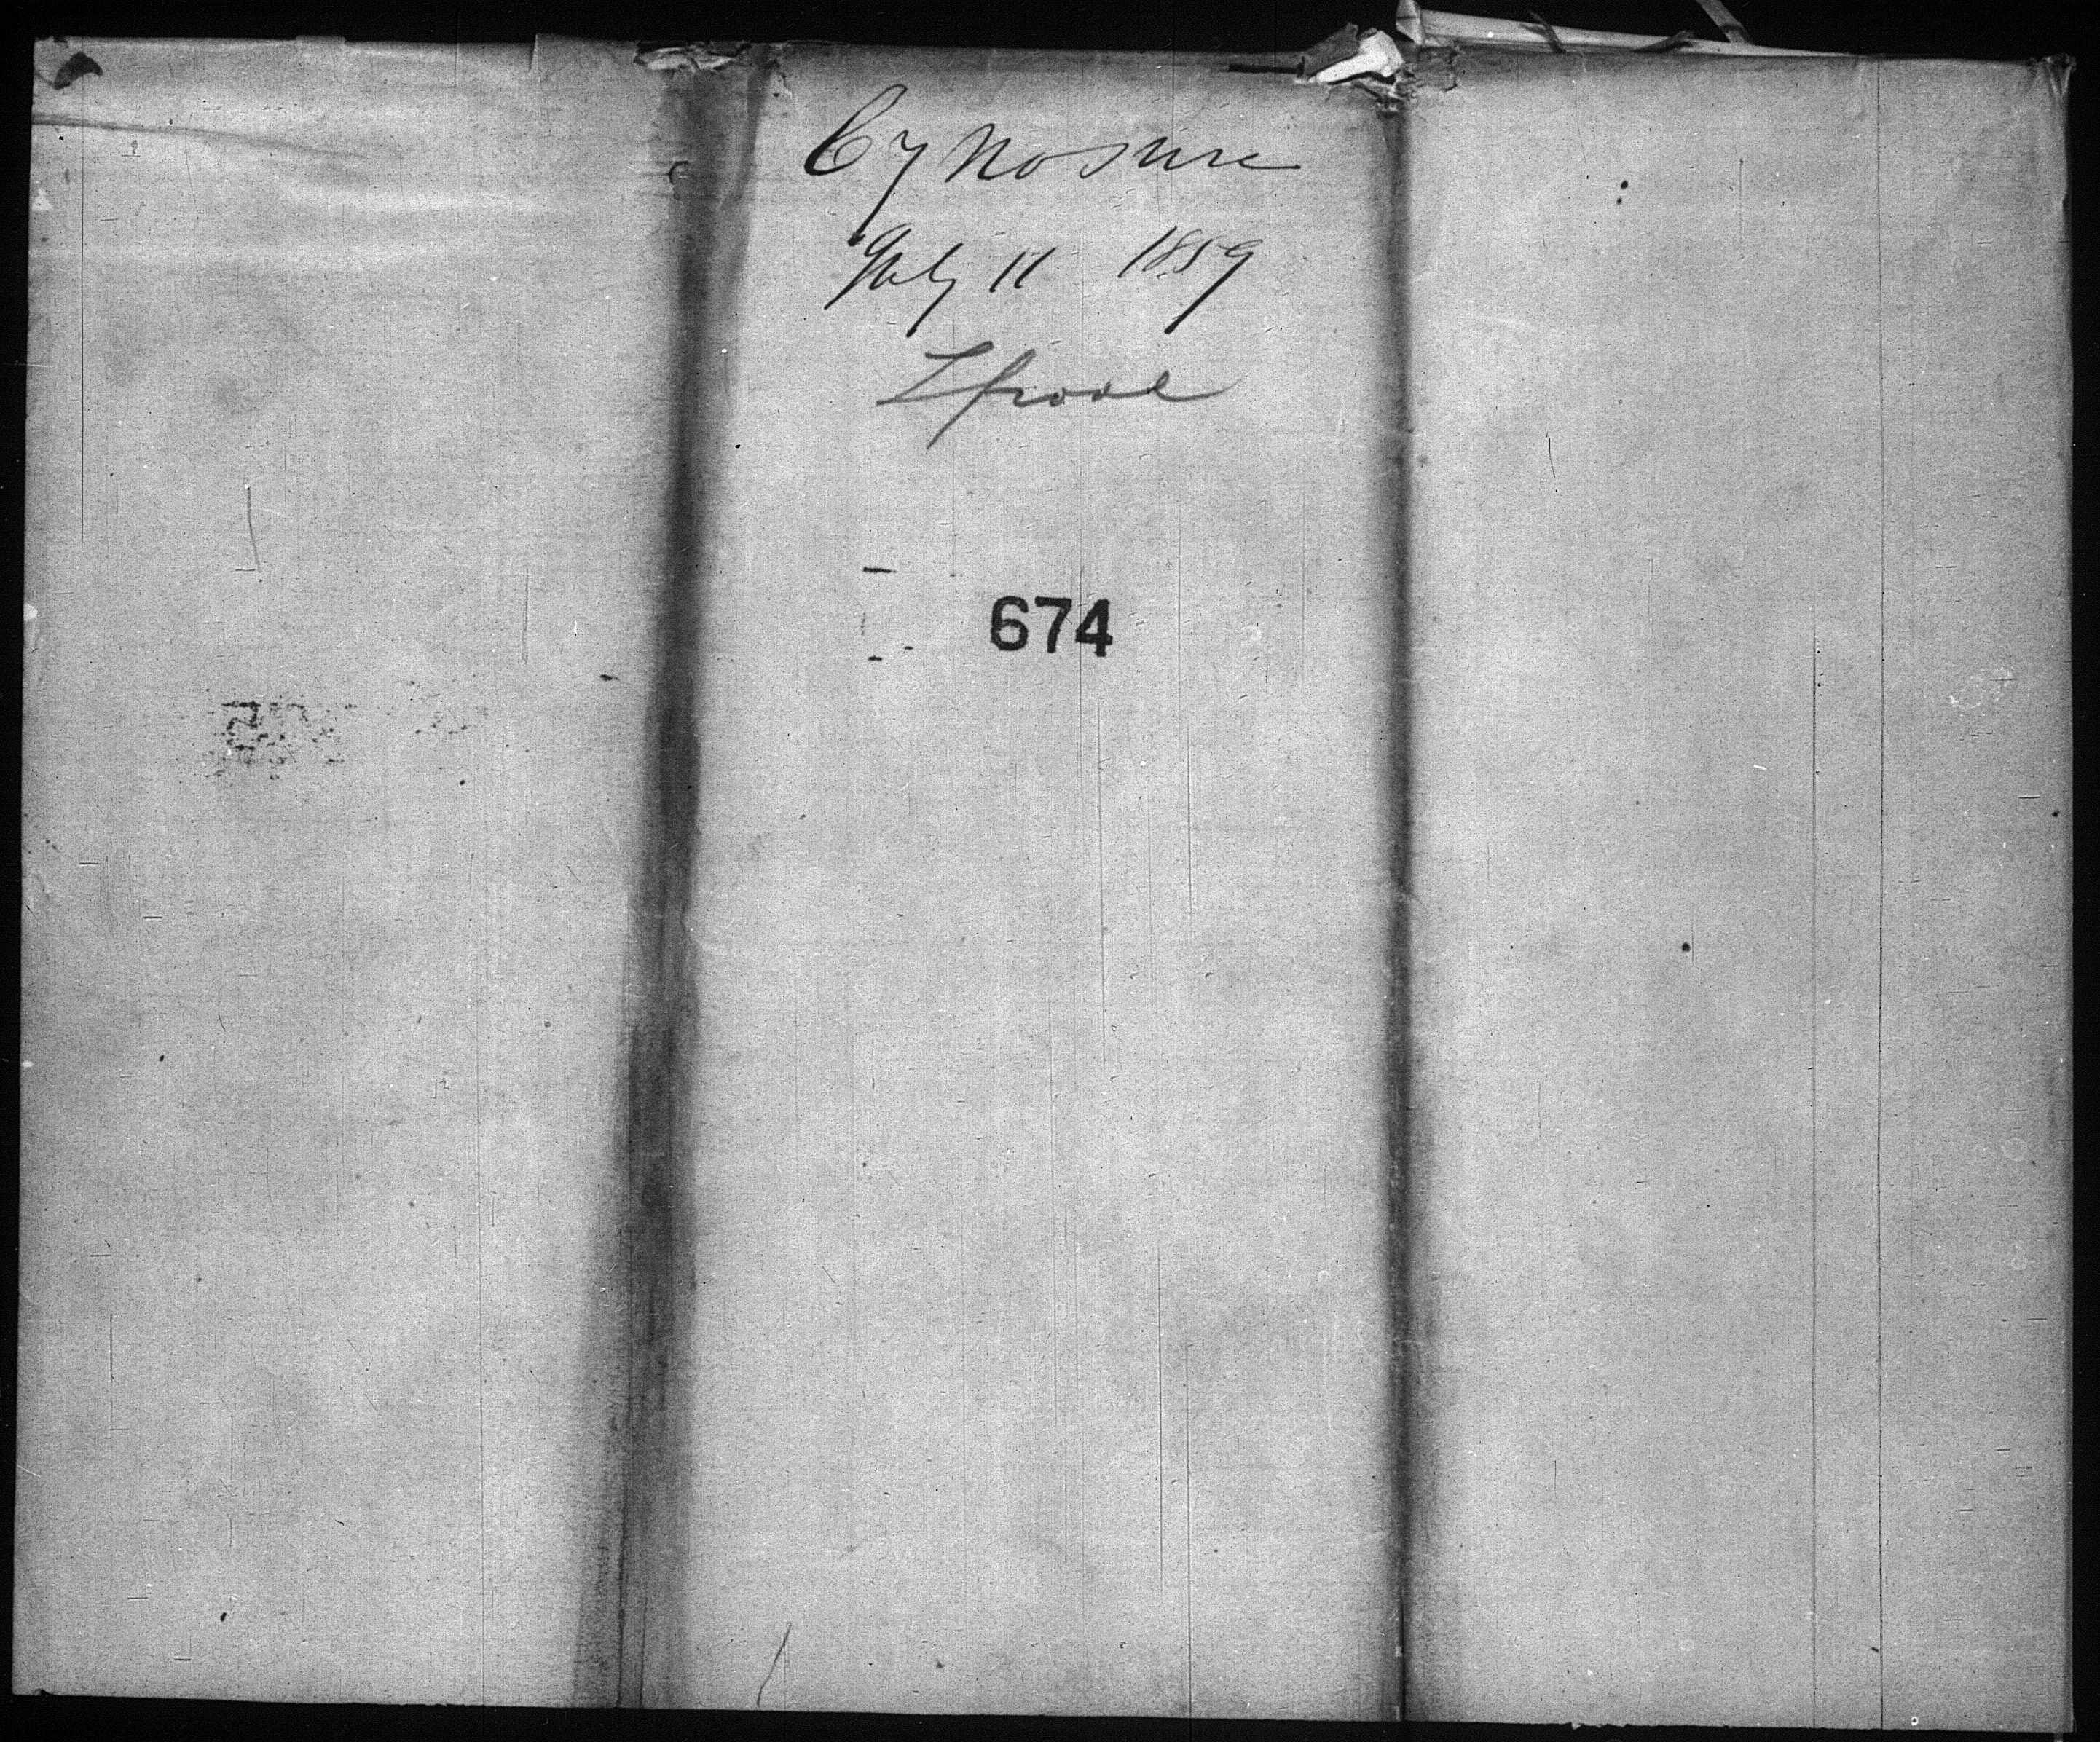 Cynosure
July 11 1859
Lpool
674